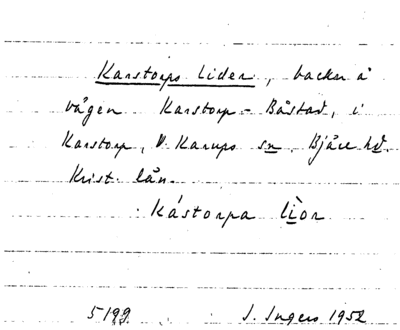 Karstorps lider, backe å
vägen Karstorp - Båstad, i
Karstorp, V. Karups sn. Bjäre hd.
Krist. län.
Kástorpa lìor
5199. I. Ingers 1952